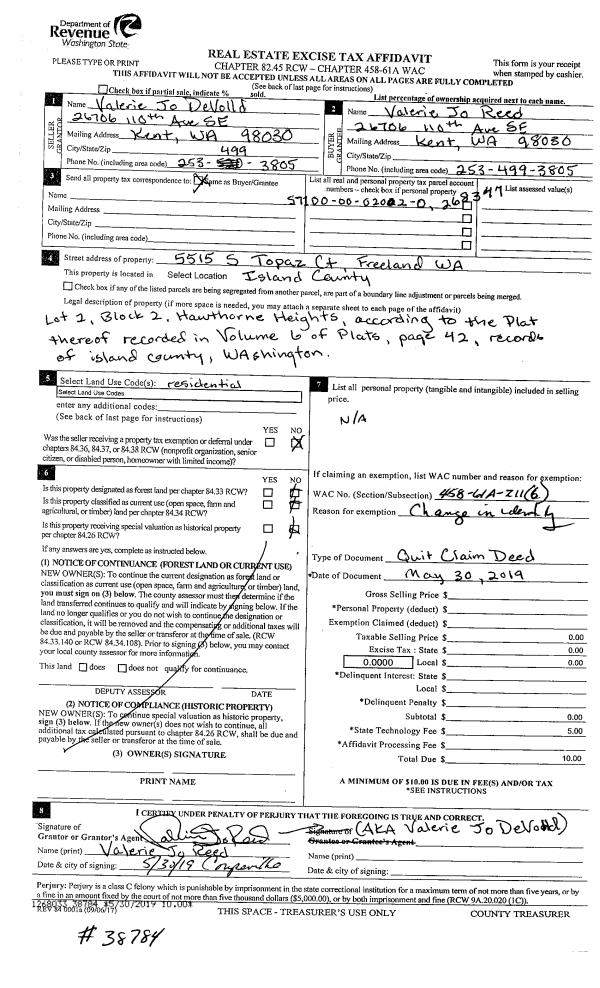 Department of
Revenue
Washington State
PLEASE TYPE OR PRINT
REAL ESTATE EXCISE TAX AFFIDAVIT
CHAPTER 82.45 RCW – CHAPTER 458-61A WAC
This form is your receipt
when stamped by cashier.
THIS AFFIDAVIT WILL NOT BE ACCEPTED UNLESS ALL AREAS ON ALL PAGES ARE FULLY COMPLETED
(See back of last page for instructions)
Check box if partial sale, indicate % sold.
List percentage of ownership acquired next to each name.
1
SELLER
GRANTOR
Name Valerie Jo DeVolld
26706 110th Ave SE
Mailing Address Kent, WA 98030
City/State/Zip
499
Phone No. (including area code) 253- - 3805
2
BUYER
GRANTEE
Name Valerie Jo Reed
26706 110th Ave SE
Mailing Address Kent, WA 98030
City/State/Zip
Phone No. (including area code) 253-499-3805
3
Send all property tax correspondence to: Same as Buyer/Grantee
Name
Mailing Address
City/State/Zip
Phone No. (including area code)
List all real and personal property tax parcel account
numbers – check box if personal property
List assessed value(s)
4
Street address of property: 5515 S Topaz Ct, Freeland WA
This property is located in Select Location Island County
Check box if any of the listed parcels are being segregated from another parcel, are part of a boundary line adjustment or parcels being merged.
Legal description of property (if more space is needed, you may attach a separate sheet to each page of the affidavit)
Lot 2, Block 2, Hawthorne Heights, according to the Plat
thereof recorded in Volume 6 of Plats, page 42, records
of island county, WAshington.
5
Select Land Use Code(s): residential
Select Land Use Codes
enter any additional codes:
(See back of last page for instructions)
YES NO
Was the seller receiving a property tax exemption or deferral under
chapters 84.36, 84.37, or 84.38 RCW (nonprofit organization, senior
citizen, or disabled person, homeowner with limited income)?
6
YES NO
Is this property designated as forest land per chapter 84.33 RCW?
Is this property classified as current use (open space, farm and
agricultural, or timber) land per chapter 84.34 RCW?
Is this property receiving special valuation as historical property
per chapter 84.26 RCW?
If any answers are yes, complete as instructed below.
(1) NOTICE OF CONTINUANCE (FOREST LAND OR CURRENT USE)
NEW OWNER(S): To continue the current designation as forest land or
classification as current use (open space, farm and agriculture, or timber) land,
you must sign on (3) below. The county assessor must then determine if the
land transferred continues to qualify and will indicate by signing below. If the
land no longer qualifies or you do not wish to continue the designation or
classification, it will be removed and the compensating or additional taxes will
be due and payable by the seller or transferor at the time of sale. (RCW
84.33.140 or RCW 84.34.108). Prior to signing (3) below, you may contact
your local county assessor for more information.
This land does does not qualify for continuance.
DEPUTY ASSESSOR DATE
(2) NOTICE OF COMPLIANCE (HISTORIC PROPERTY)
NEW OWNER(S): To continue special valuation as historic property,
sign (3) below. If the new owner(s) does not wish to continue, all
additional tax calculated pursuant to chapter 84.26 RCW, shall be due and
payable by the seller or transferor at the time of sale.
(3) OWNER(S) SIGNATURE
PRINT NAME
7
List all personal property (tangible and intangible) included in selling
price.
N/A
If claiming an exemption, list WAC number and reason for exemption:
WAC No. (Section/Subsection) 458-61A-211(6)
Reason for exemption Change in identity
Type of Document Quit Claim Deed
*Date of Document May 30, 2019
Gross Selling Price $
*Personal Property (deduct) $
Exemption Claimed (deduct) $
Taxable Selling Price $ 0.00
Excise Tax : State $ 0.00
0.0000 Local $ 0.00
*Delinquent Interest: State $
Local $
*Delinquent Penalty $
Subtotal $ 0.00
*State Technology Fee $ 5.00
*Affidavit Processing Fee $
Total Due $ 10.00
A MINIMUM OF $10.00 IS DUE IN FEE(S) AND/OR TAX
*SEE INSTRUCTIONS
8
I CERTIFY UNDER PENALTY OF PERJURY THAT THE FOREGOING IS TRUE AND CORRECT.
Signature of
Grantor or Grantor's Agent Valerie Jo Reed
Name (print) Valerie Jo Reed
Date & city of signing: 5/30/19
Signature of (AKA Valerie Jo DeVolld)
Grantee or Grantee's Agent
Name (print)
Date & city of signing:
Perjury: Perjury is a class C felony which is punishable by imprisonment in the state correctional institution for a maximum term of not more than five years, or by
a fine in an amount fixed by the court of not more than five thousand dollars ($5,000.00), or by both imprisonment and fine (RCW 9A.20.020 (1C)).
1268033 38784 $5/30/2019 10.00*
REV 84 0001a (09/06/17)
THIS SPACE - TREASURER'S USE ONLY
COUNTY TREASURER
# 38784